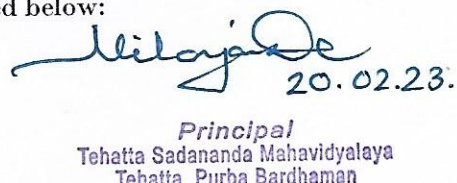 ed below:
20.02.23.
Principal
Tehatta Sadananda Mahavidyalaya
Tehatta, Purba Bardhaman